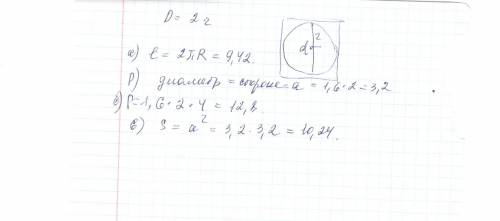 D = 2r
d 2
а) C = 2πR = 9,42.
р) диаметр = стороне = a = 1,6 · 2 = 3,2
в) P = 1,6 · 2 · 4 = 12,8
г) S = a² = 3,2 · 3,2 = 10,24.